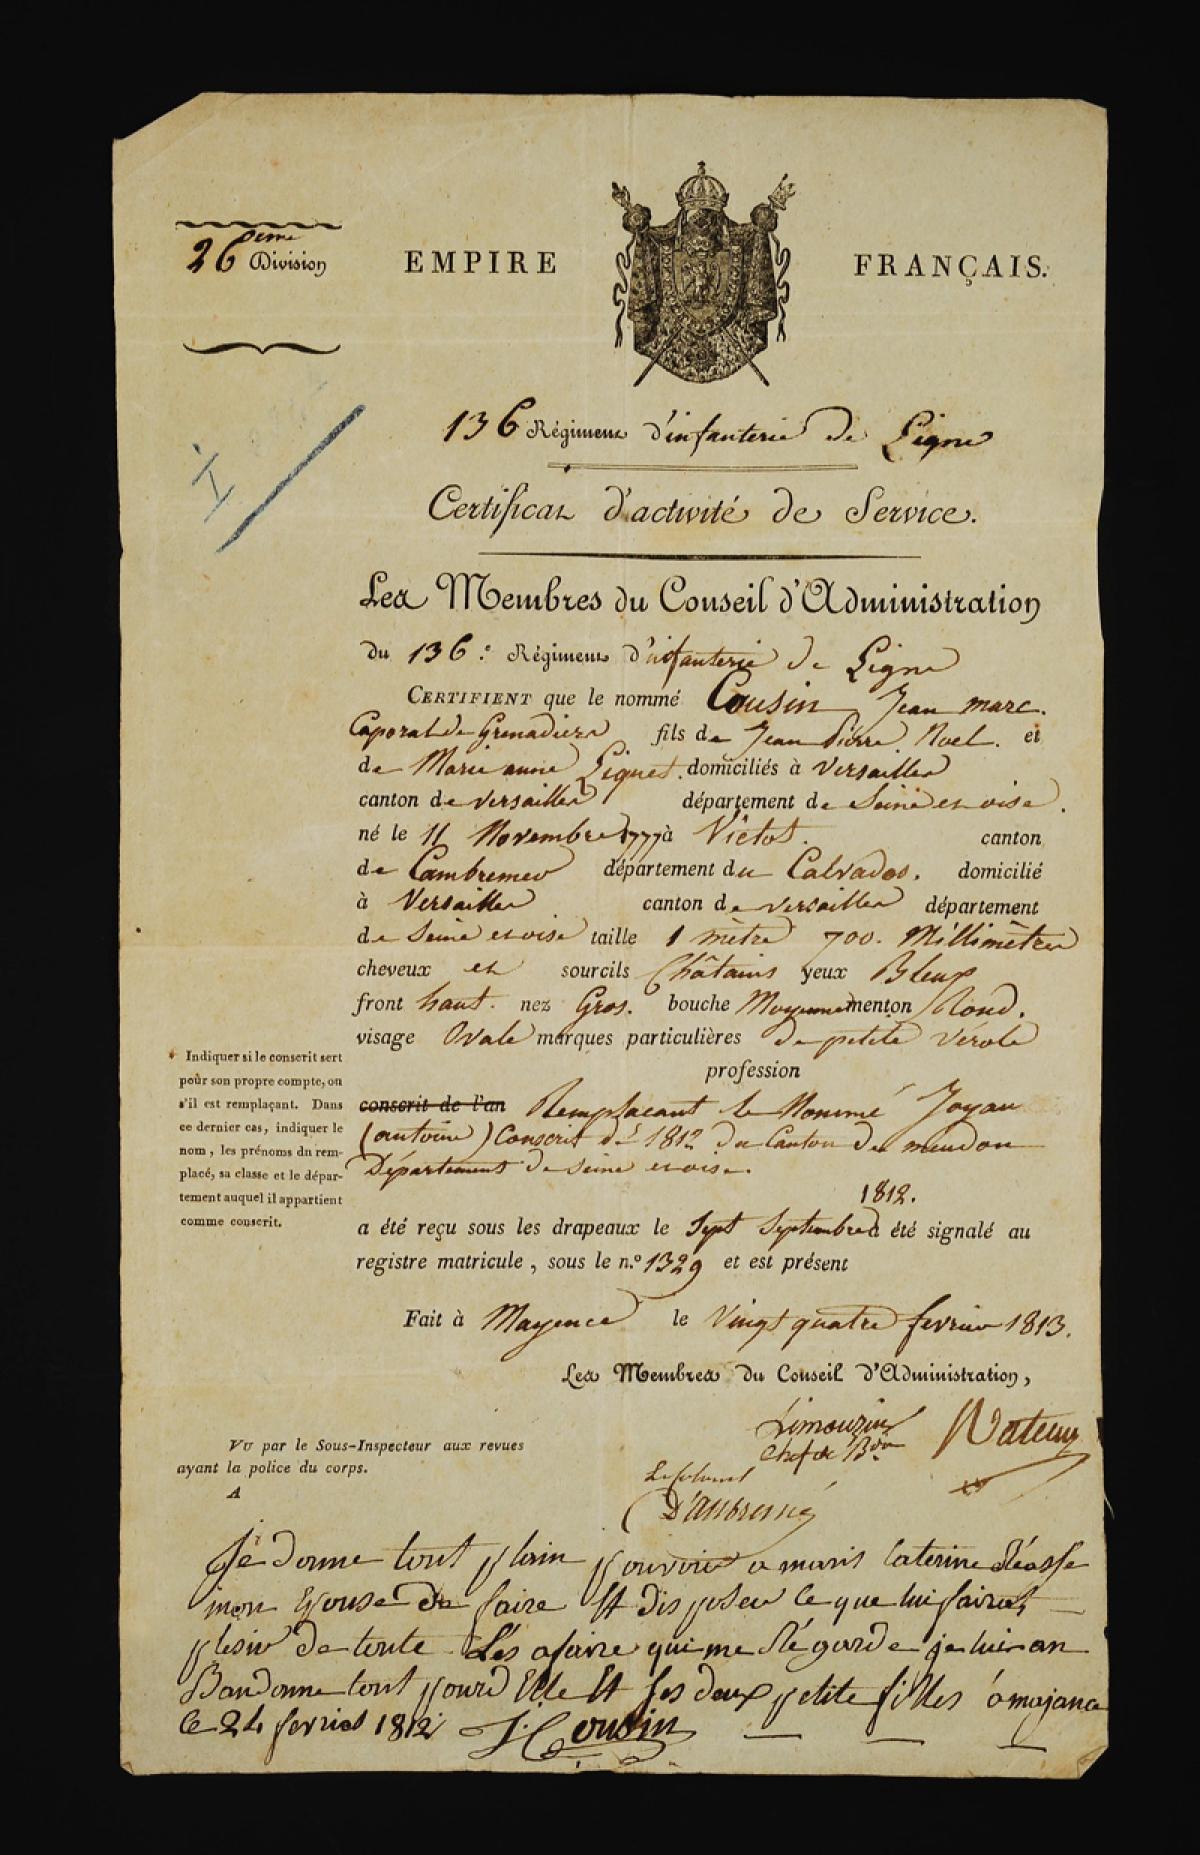 26eme Division
EMPIRE FRANÇAIS.
136 Régiment d'infanterie de Ligne
Certificat d'activité de Service.
Les Membres du Conseil d'Administration
du 136.e Régiment d'infanterie de Ligne
CERTIFIENT que le nommé Cousin Jean marc.
Caporal de Grenadiers fils de Jean Pierre Noel. et
de Marie anne Liquet. domiciliés à Versailles
canton de Versailles département de Seine et oise.
né le 11 Novembre 1777 à Victot. canton
de Cambremer département du Calvados. domicilié
à Versailles canton de versailles département
de Seine et oise taille 1 mètre 700. Millimètres
cheveux et sourcils Châtains yeux Bleus
front haut. nez Gros. bouche Moyenne menton Rond.
visage Ovale marques particulières de petite vérole
profession
conscrit de l'an Remplacant le Nommé Joyau
(antoine) Conscrit de 1812 du Canton de meudon
Département de Seine et oise.
1812.
a été reçu sous les drapeaux le Sept Septembre a été signalé au
registre matricule, sous le n.o 1329 et est présent
* Indiquer si le conscrit sert
pour son propre compte, ou
s'il est remplaçant. Dans
ce dernier cas, indiquer le
nom, les prénoms du rem-
placé, sa classe et le dépar-
tement auquel il appartient
comme conscrit.
Fait à Mayence le Vingt quatre fevrier 1813.
Les Membres du Conseil d'Administration,
Limouzin
Chef de Bon
Le Colonel
D'Aubremé
VU par le Sous-Inspecteur aux revues
ayant la police du corps.
A
Je donne tout plain pouvoir a maris Caterine
mon Epouse de faire Et disposer ce que lui fairat
plesir de toute Les afaire qui me Régarde je lui an
Bandonne tout pourd Elle Et ses deux petite filles a majance
le 24 fevries 1812 J. Cousin